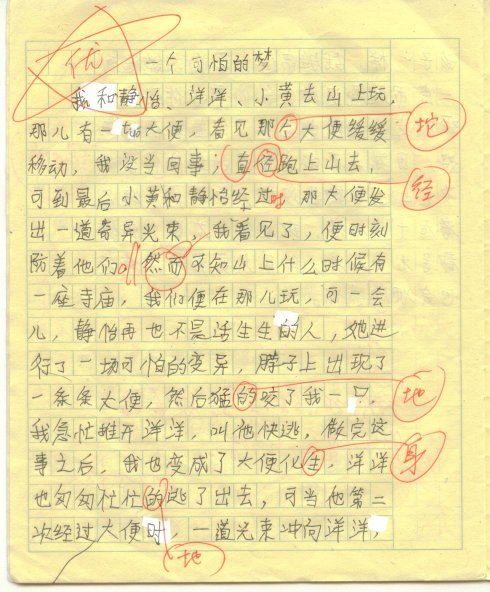 优
一个可怕的梦
我和静怡、洋洋、小黄去山上玩，
那儿有一坨大便，看见那个大便缓缓 坨
移动，我没当回事，直径跑上山去， 经
可到最后小黄和静怡经过时那大便发
出一道奇异光束，我看见了，便时刻
防着他们。然而不知山上什么时候有
一座寺庙，我们便在那儿玩，可一会
儿，静怡再也不是活生生的人，她进
行了一场可怕的变异，脖子上出现了
一条条大便，然后猛的咬了我一口， 地
我急忙推开洋洋，叫他快逃，做完这
事之后，我也变成了大便化生，洋洋 身
也匆匆忙忙的逃了出去，可当他第二
次经过大便时，一道光束冲向洋洋，
地